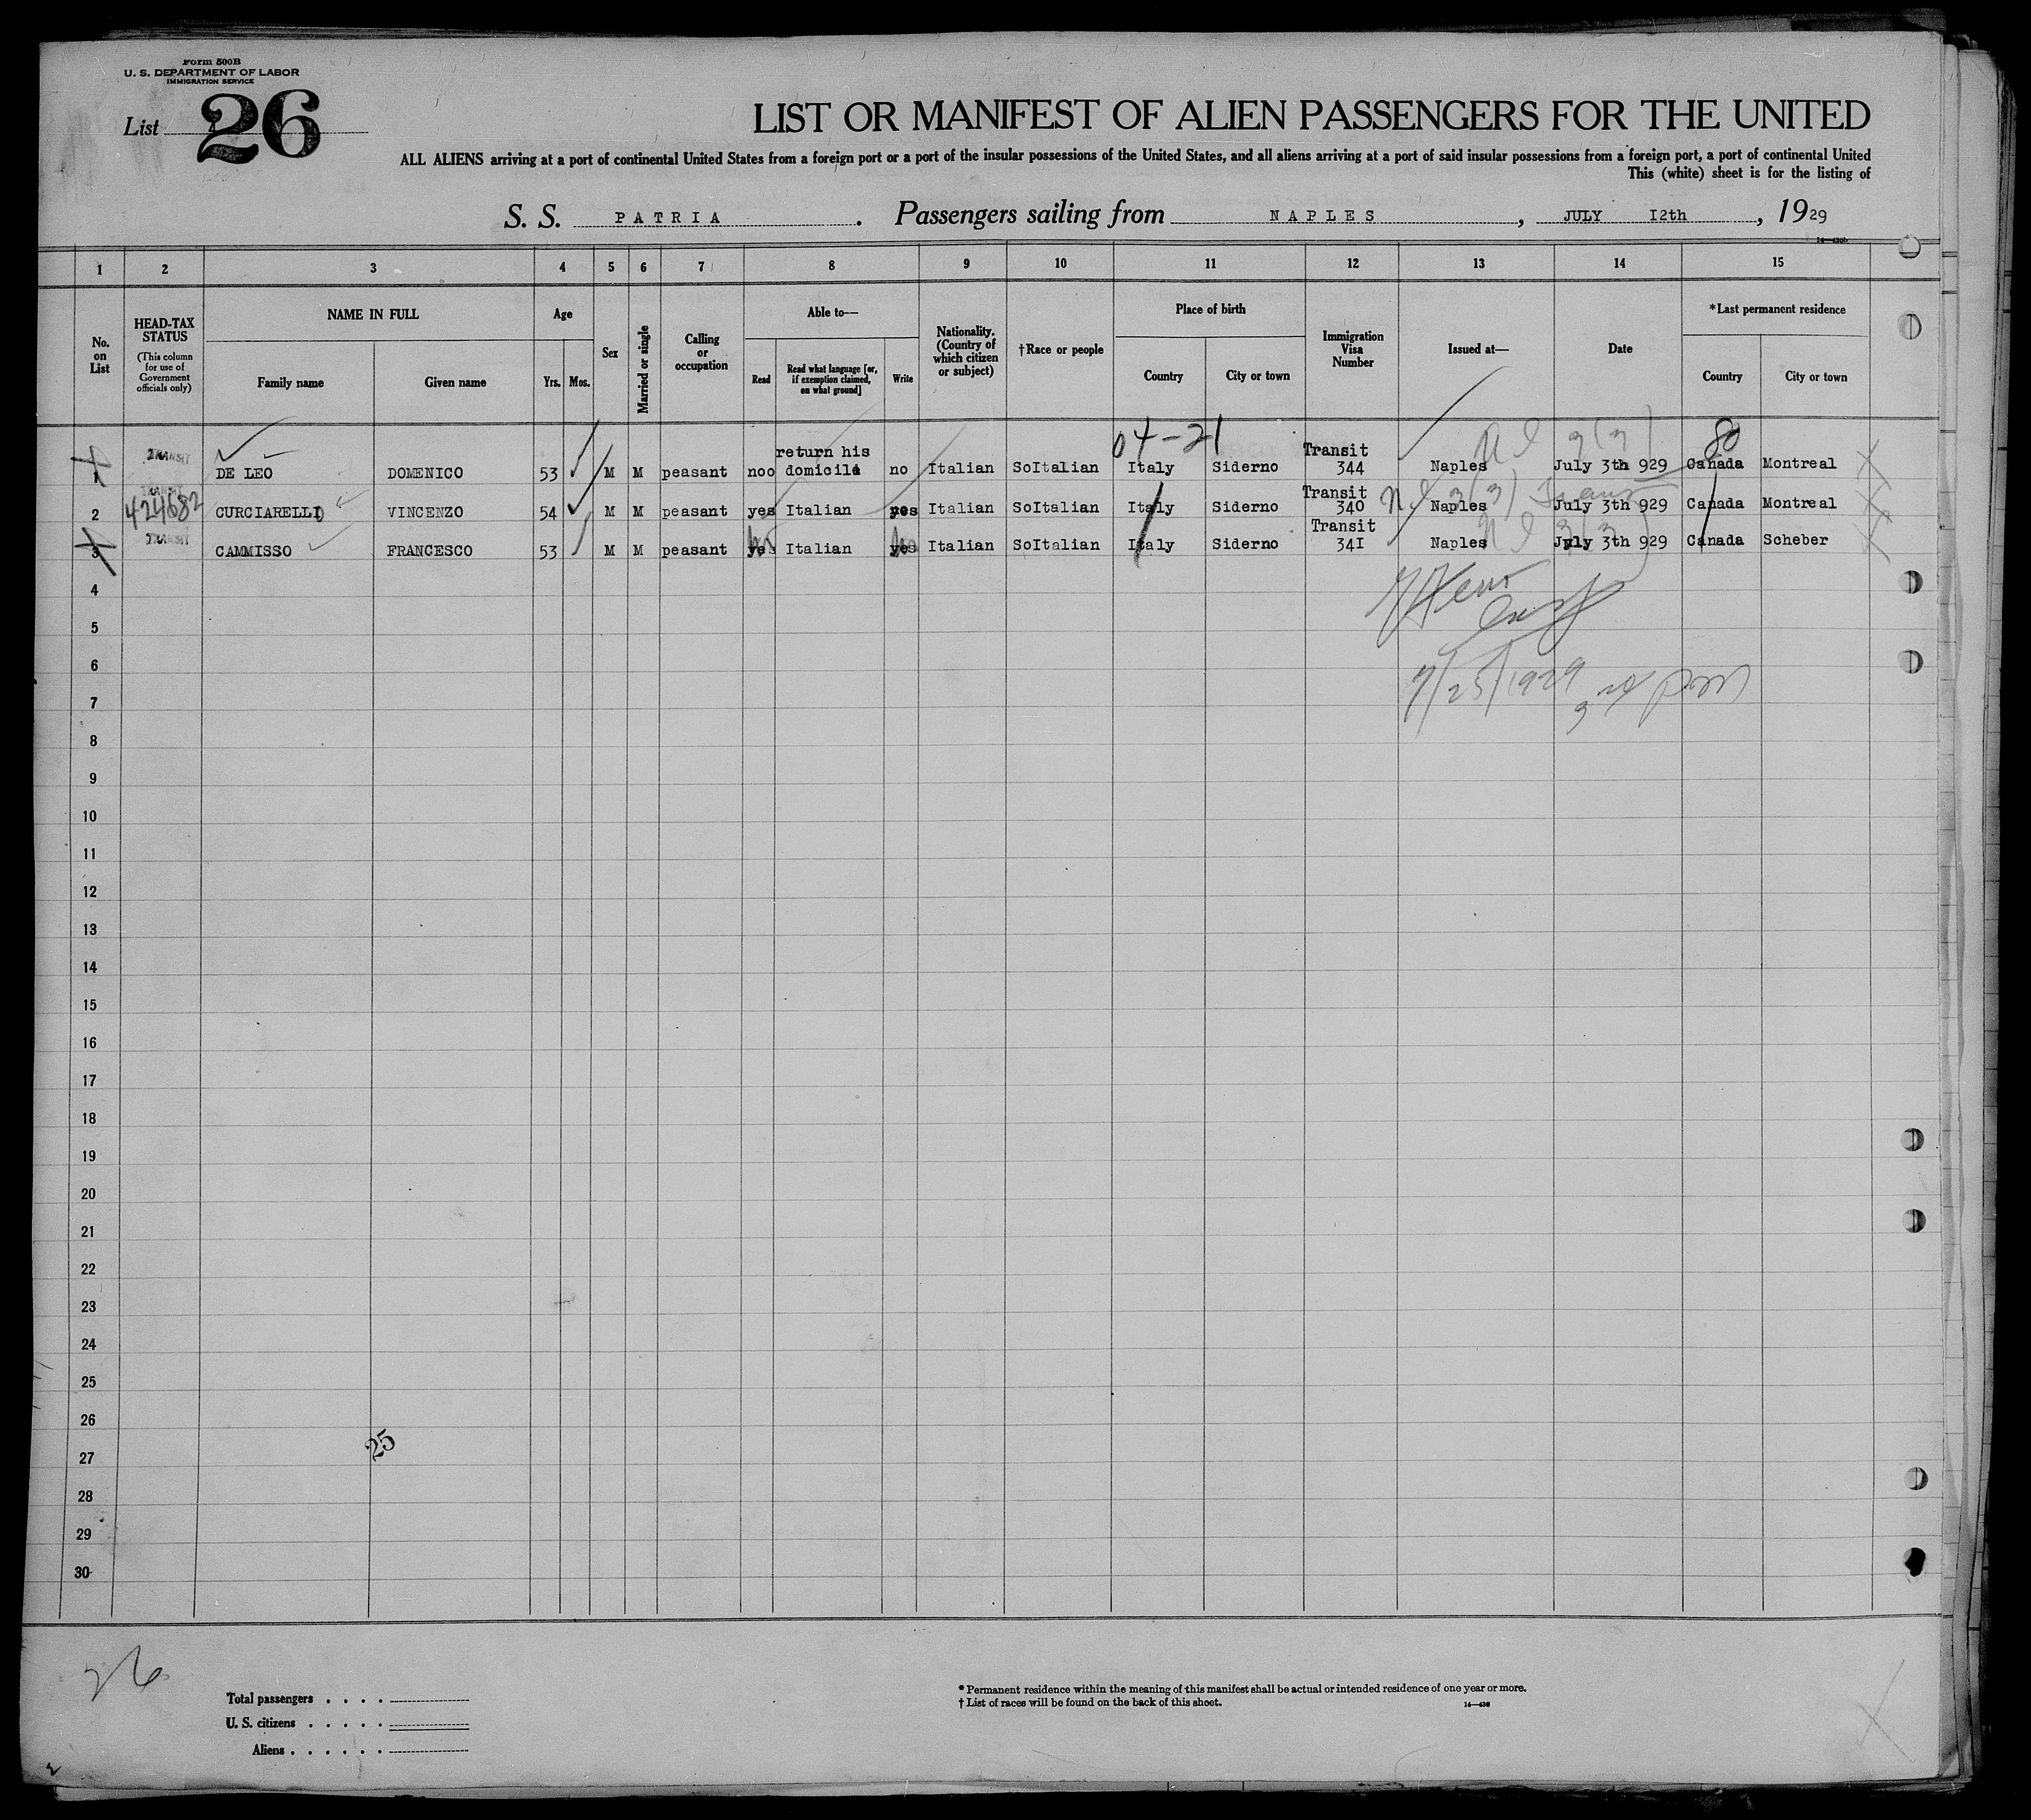 Form 500B
U. S. DEPARTMENT OF LABOR
IMMIGRATION SERVICE
List 26
LIST OR MANIFEST OF ALIEN PASSENGERS FOR THE UNITED
ALL ALIENS arriving at a port of continental United States from a foreign port or a port of the insular possessions of the United States, and all aliens arriving at a port of said insular possessions from a foreign port, a port of continental United
This (white) sheet is for the listing of
S. S. PATRIA . Passengers sailing from NAPLES , JULY I2th , 1929
14—430b
1 2 3 4 5 6 7 8 9 10 11 12 13 14 15
No. on List
HEAD-TAX STATUS (This column for use of Government officials only)
NAME IN FULL
Family name Given name
Age
Yrs. Mos.
Sex
Married or single
Calling or occupation
Able to—
Read
Read what language [or, if exemption claimed, on what ground]
Write
Nationality. (Country of which citizen or subject)
†Race or people
Place of birth
Country City or town
Immigration Visa Number
Issued at—
Date
*Last permanent residence
Country City or town
04-21 80
TRANSIT return his Transit
1 DE LEO DOMENICO 53 M M peasant noo domicile no Italian SoItalian Italy Siderno 344 Naples July 3th 929 Canada Montreal
TRANSIT Transit
2 424682 CURCIARELLO VINCENZO 54 M M peasant yes Italian yes Italian SoItalian Italy Siderno 340 Naples July 3th 929 Canada Montreal
TRANSIT Transit
3 CAMMISSO FRANCESCO 53 M M peasant yes Italian yes Italian SoItalian Italy Siderno 34I Naples July 3th 929 Canada Scheber
4
5
6
7/25/1929
7
8
9
10
11
12
13
14
15
16
17
18
19
20
21
22
23
24
25
26
25
27
28
29
30
26
Total passengers . . . .
U. S. citizens . . . . .
Aliens . . . . . .
* Permanent residence within the meaning of this manifest shall be actual or intended residence of one year or more.
† List of races will be found on the back of this sheet.
14—430